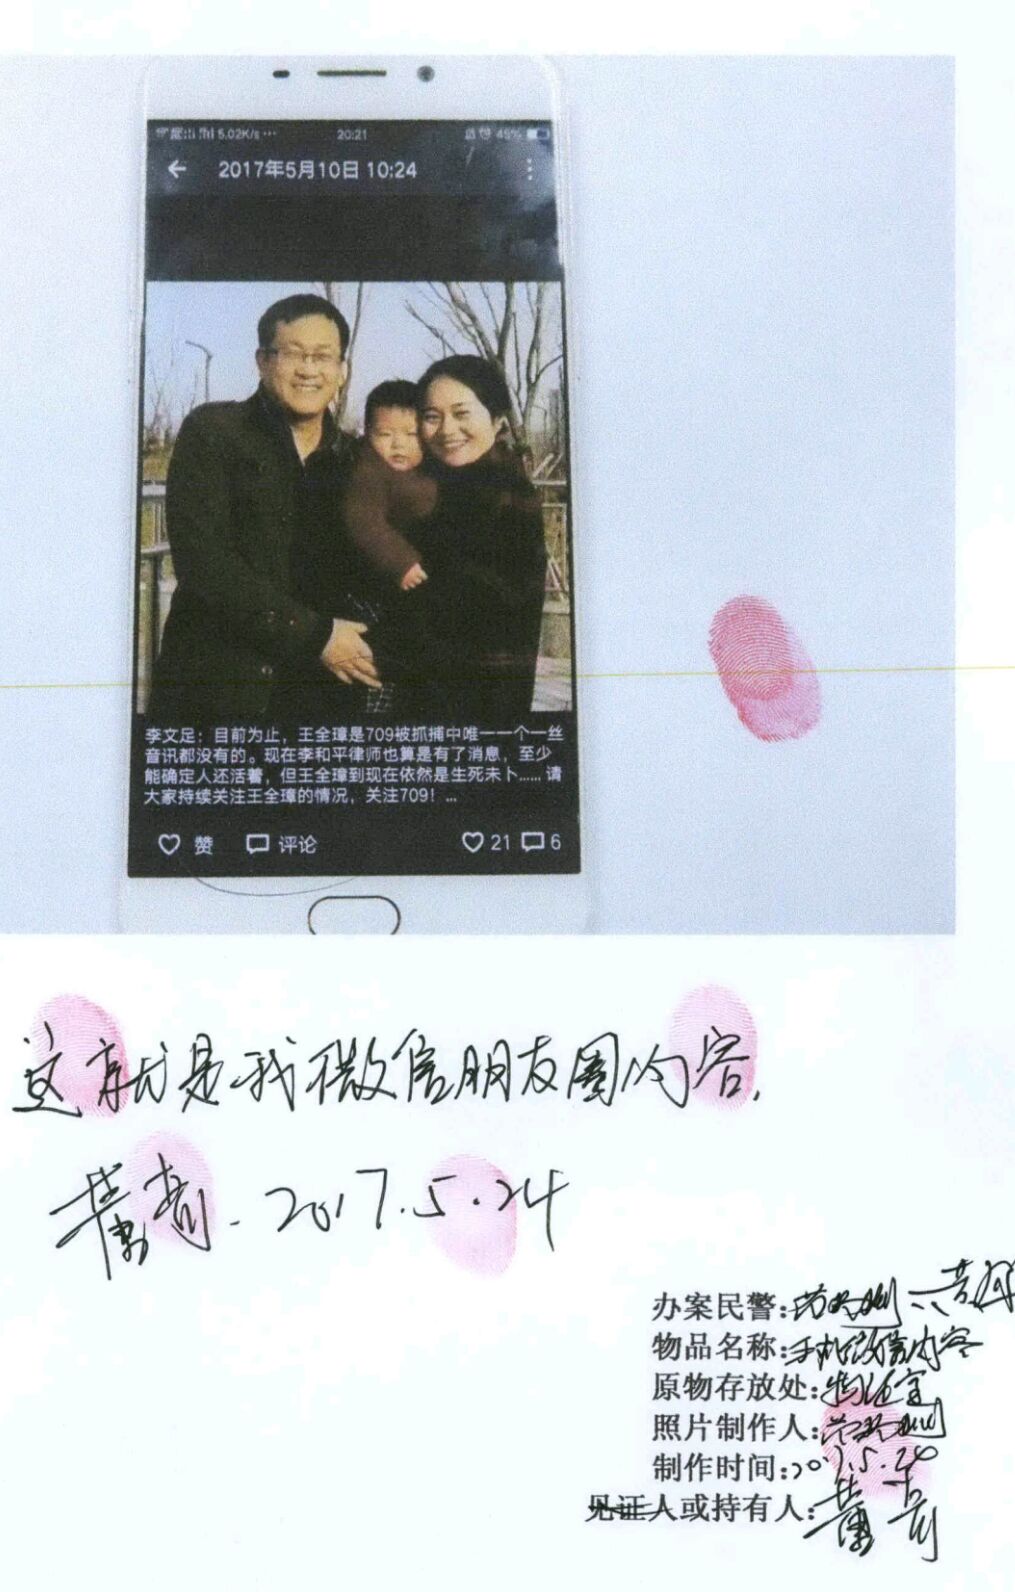 5.02K/s ... 20:21 45%
2017年5月10日 10:24
李文足：目前为止，王全璋是709被抓捕中唯一一个一丝
音讯都没有的。现在李和平律师也算是有了消息，至少
能确定人还活着，但王全璋到现在依然是生死未卜...... 请
大家持续关注王全璋的情况，关注709！...
赞 评论 21 6
这就是我微信朋友圈内容.
2017.5.24
办案民警:
物品名称:手机微信内容
原物存放处:物证室
照片制作人:
制作时间:2017.5.24
见证人或持有人: